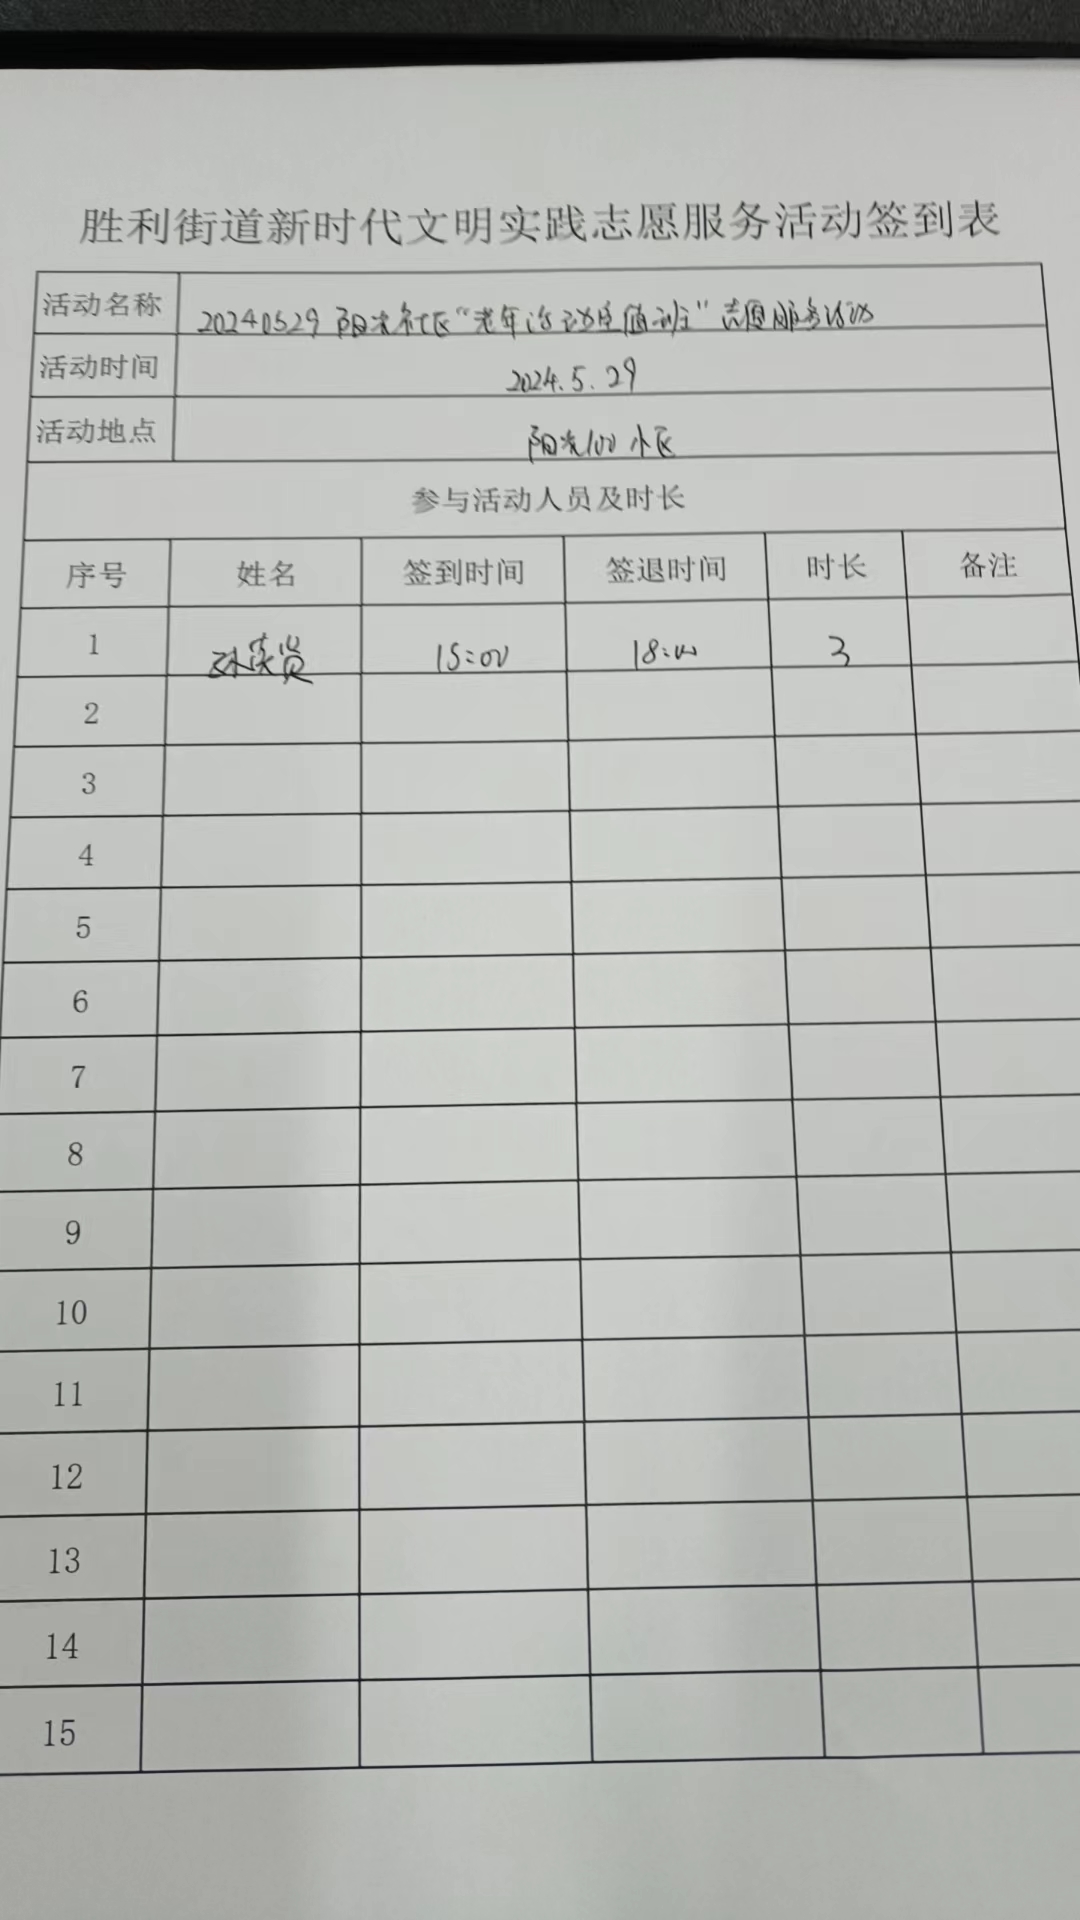 胜利街道新时代文明实践志愿服务活动签到表
活动名称 20240529 阳光社区“老年活动室值班”志愿服务活动
活动时间 2024.5.29
活动地点 阳光100小区
参与活动人员及时长
序号 姓名 签到时间 签退时间 时长 备注
1 孙 15:00 18:00 3
2
3
4
5
6
7
8
9
10
11
12
13
14
15